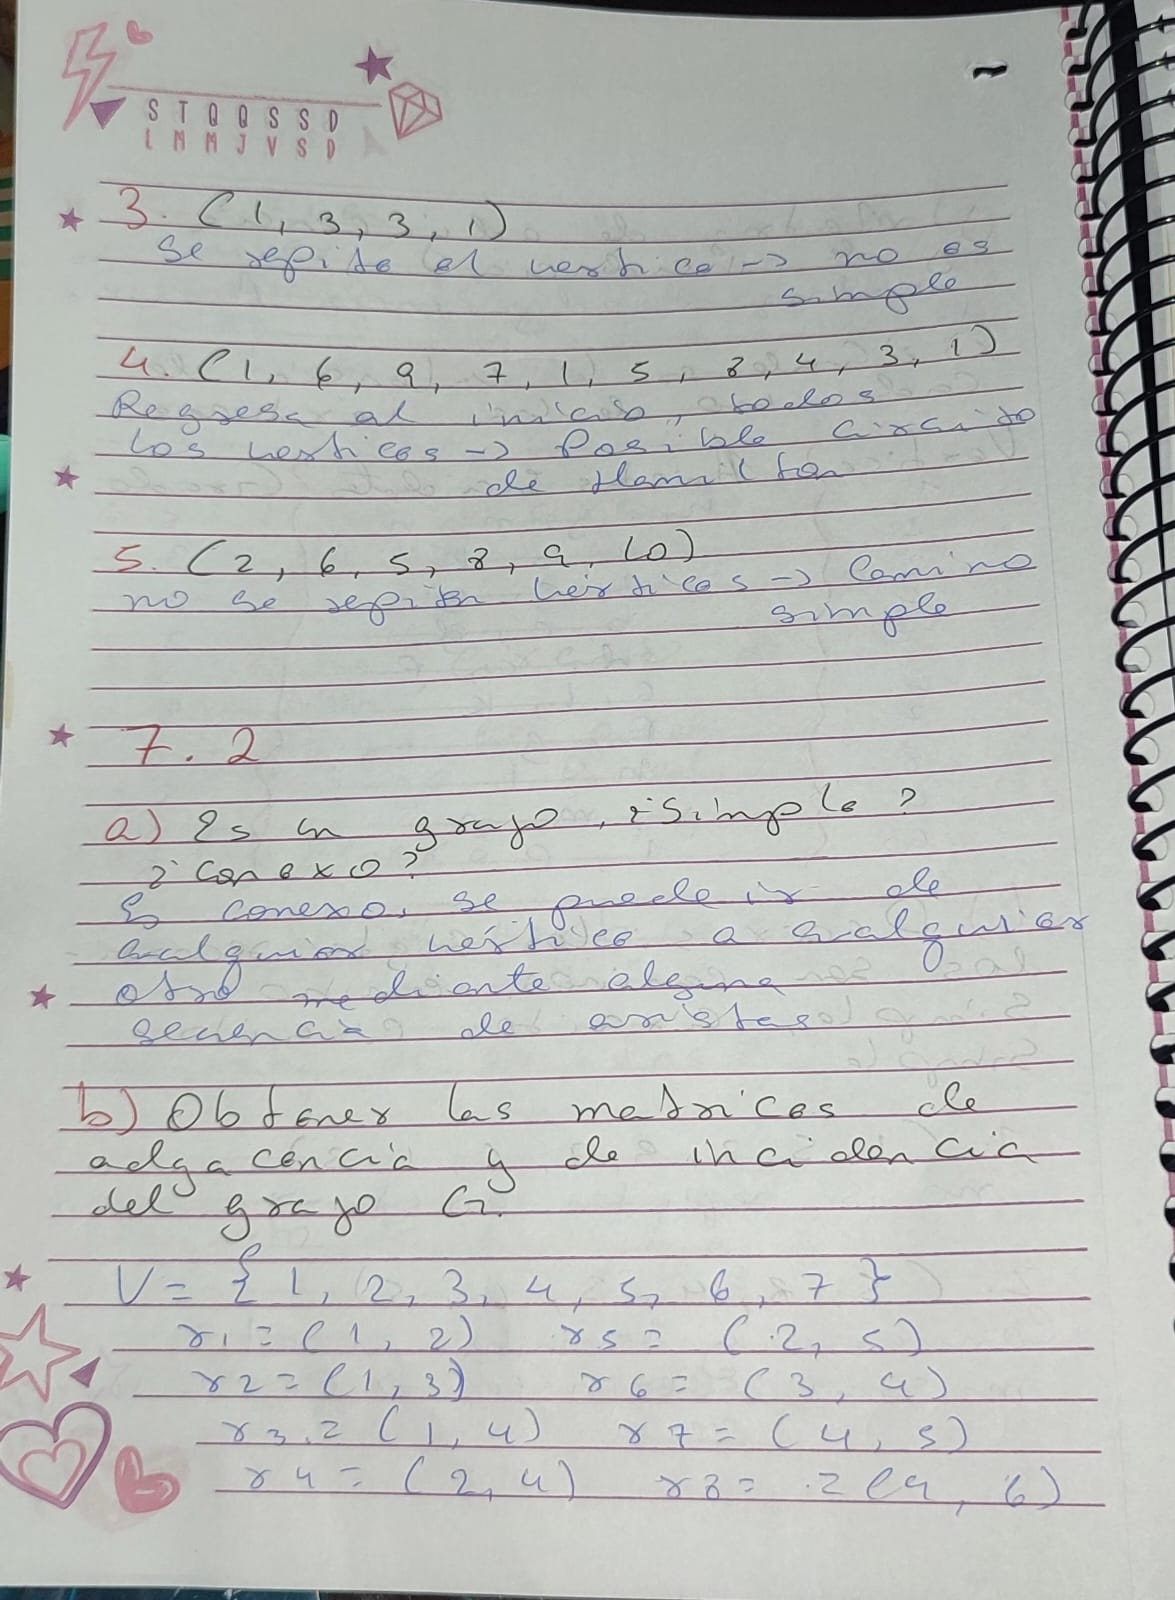 S T Q Q S S D
L M M J V S D
3. (1, 3, 3, 1)
se repite el vertice -> no es
simple
4. (1, 6, 9, 7, 1, 5, 8, 4, 3, 1)
Regresa al inicio, todos
los vertices -> Posible circuito
de Hamilton
5. (2, 6, 5, 8, 9, 10)
no se repiten vértices -> Camino
simple
7. 2
a) Es un grafo, ¿Simple?
¿conexo?
Es conexo, se puede ir de
cualquier vértice a cualquier
otro mediante alguna
secuencia de aristas
b) Obtener las matrices de
adgacéncia y de incidencia
del grafo G.
V = { 1, 2, 3, 4, 5, 6, 7 }
r1 = (1, 2) r5 = (2, 5)
r2 = (1, 3) r6 = (3, 4)
r3 = (1, 4) r7 = (4, 5)
r4 = (2, 4) r8 = (4, 6)